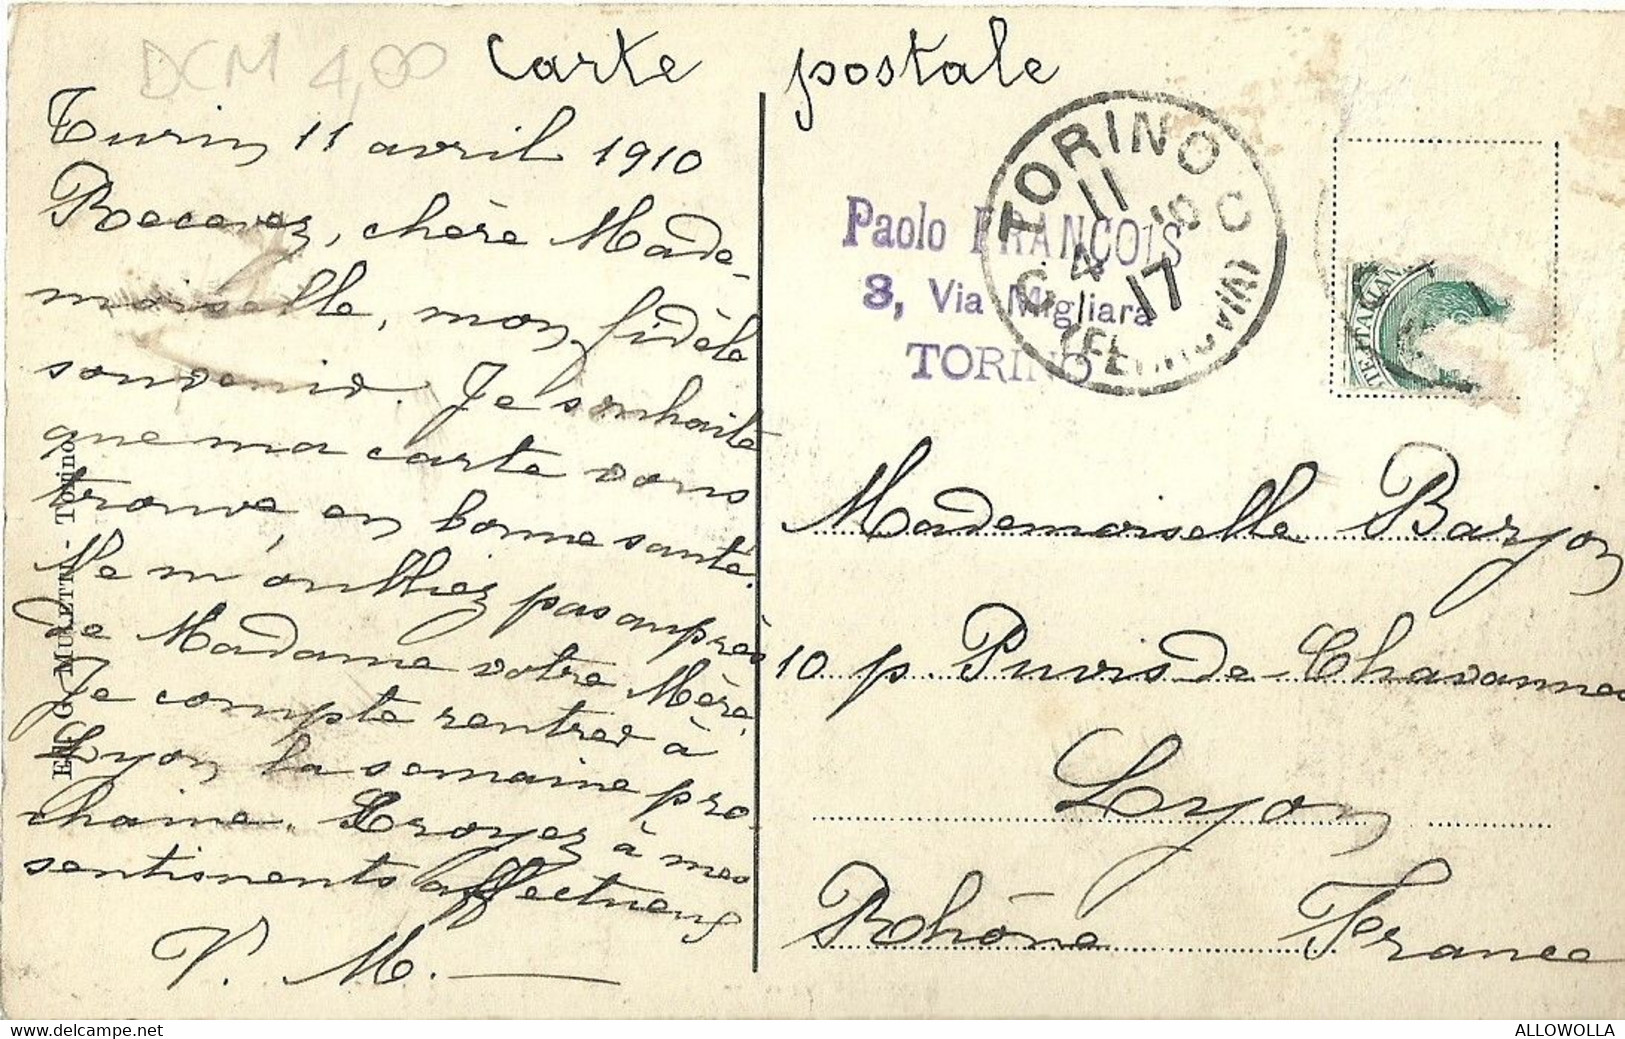 DCM 4,00
Carte postale
Turin 11 avril 1910
Recevez, chère Made-
moiselle, mon fidèle
souvenir. Je souhaite
que ma carte vous
trouve, en bonne santé.
Ne m'oubliez pas auprès
de Madame votre Mère.
Je compte rentrer à
Lyon la semaine pro-
chaine. Croyez à mes
sentiments affectueux
V. M.
Ed. G. MULETTI - Torino
Paolo FRANÇOIS
8, Via Migliara
TORINO
TORINO
11 4 10
17
TE ITALIAN
Mademoiselle Barjon
10 p. Puvis de Chavannes
Lyon
Rhône France
ALLOWOLLA
www.delcampe.net